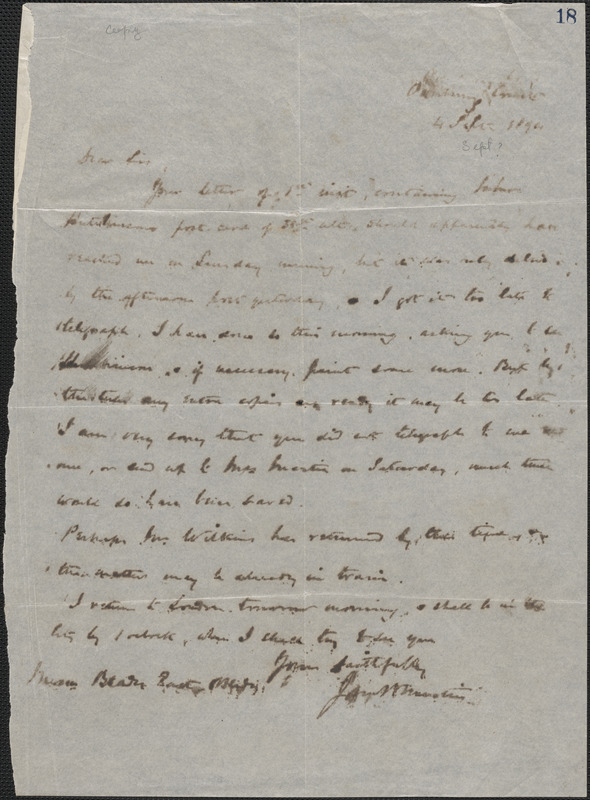 18
copy
4 Sept 1890
Sept?
Dear Sir,
Your letter of 1st inst, containing
post card of ulto. should apparently have
reached me on Sunday morning, but it was only
by the afternoon post yesterday, & I got it too late to
telegraph. I have done so this morning, asking you to
& if necessary print some more. But by
the time any extra copies are ready it may be too late.
I am very sorry that you did not telegraph to me
one, or send up to Mrs Martin on Saturday, much time
would so have been saved.
Perhaps Mr. Wilkins has returned by this time, &
the matter may be already in train.
I return to London tomorrow morning, & shall be in the
City by 1 oclock, when I shall try to see you
Yours faithfully
Messrs Blades East & Blades